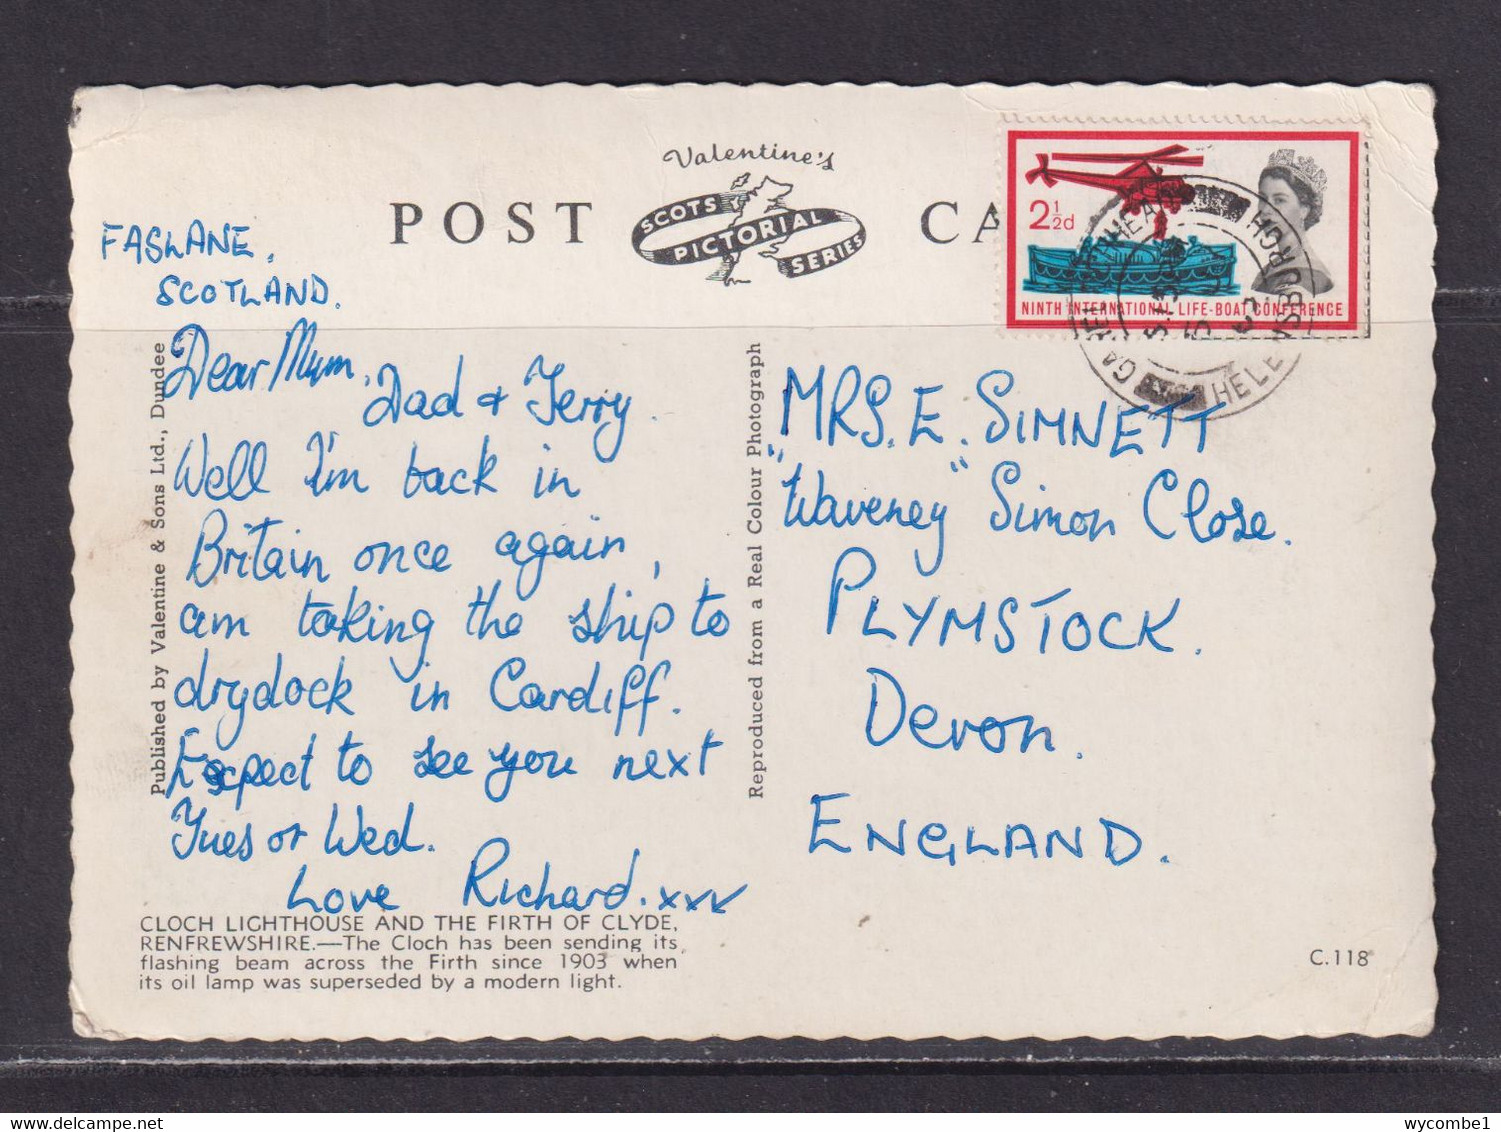 Valentine's
POST CA
SCOTS
PICTORIAL
SERIES
2½d
NINTH INTERNATIONAL LIFE-BOAT CONFERENCE
HELENSBURGH
FASLANE,
SCOTLAND.
Dear Mum,
Dad & Terry.
Well I'm back in
Britain once again,
am taking the ship to
drydock in Cardiff.
Expect to see you next
Tues or Wed.
Love Richard. xxx
Published by Valentine & Sons Ltd., Dundee
Reproduced from a Real Colour Photograph
MRS. E. SIMNETT
"Waveney" Simon Close.
PLYMSTOCK.
Devon.
ENGLAND.
CLOCH LIGHTHOUSE AND THE FIRTH OF CLYDE,
RENFREWSHIRE.—The Cloch has been sending its
flashing beam across the Firth since 1903 when
its oil lamp was superseded by a modern light.
C.118
wycombe1